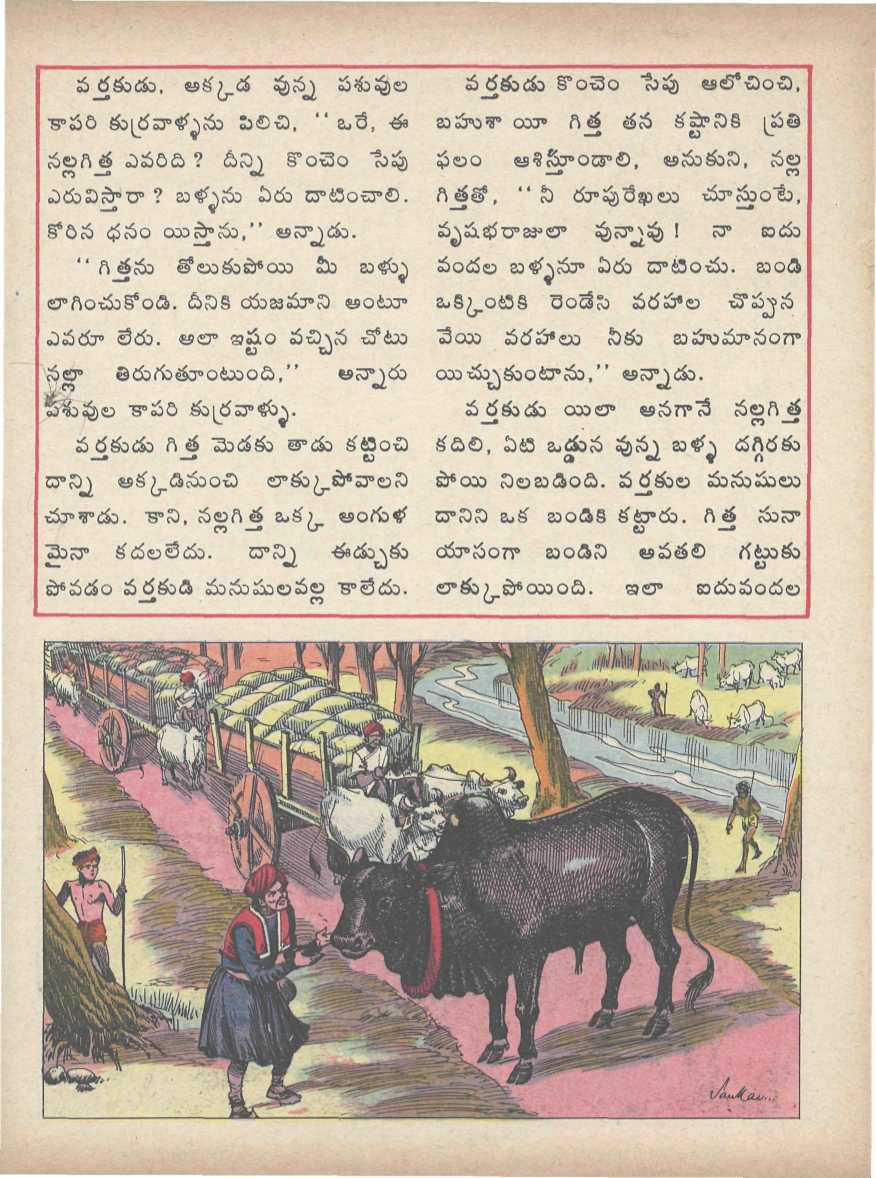 వర్తకుడు, అక్కడ వున్న పశువుల
కాపరి కుర్రవాళ్ళను పిలిచి, ‘‘ ఒరే, ఈ
నల్లగిత్త ఎవరిది ? దీన్ని కొంచెం సేపు
ఎరువిస్తారా ? బళ్ళను ఏరు దాటించాలి.
కోరిన ధనం యిస్తాను,’’ అన్నాడు.
‘‘ గిత్తను తోలుకుపోయి మీ బళ్ళు
లాగించుకోండి. దీనికి యజమాని అంటూ
ఎవరూ లేరు. అలా ఇష్టం వచ్చిన చోటు
నల్లా తిరుగుతూంటుంది,’’ అన్నారు
పశువుల కాపరి కుర్రవాళ్ళు.
వర్తకుడు గిత్త మెడకు తాడు కట్టించి
దాన్ని అక్కడినుంచి లాక్కుపోవాలని
చూశాడు. కాని, నల్లగిత్త ఒక్క అంగుళ
మైనా కదలలేదు. దాన్ని ఈడ్చుకు
పోవడం వర్తకుడి మనుషులవల్ల కాలేదు.
వర్తకుడు కొంచెం సేపు ఆలోచించి,
బహుశా యీ గిత్త తన కష్టానికి ప్రతి
ఫలం ఆశిస్తూండాలి, అనుకుని, నల్ల
గిత్తతో, ‘‘ నీ రూపురేఖలు చూస్తుంటే,
వృషభరాజులా వున్నావు ! నా ఐదు
వందల బళ్ళనూ ఏరు దాటించు. బండి
ఒక్కింటికి రెండేసి వరహాల చొప్పున
వేయి వరహాలు నీకు బహుమానంగా
యిచ్చుకుంటాను,’’ అన్నాడు.
వర్తకుడు యిలా అనగానే నల్లగిత్త
కదిలి, ఏటి ఒడ్డున వున్న బళ్ళ దగ్గిరకు
పోయి నిలబడింది. వర్తకుల మనుషులు
దానిని ఒక బండికి కట్టారు. గిత్త సునా
యాసంగా బండిని అవతలి గట్టుకు
లాక్కుపోయింది. ఇలా ఐదువందల
Sankar...